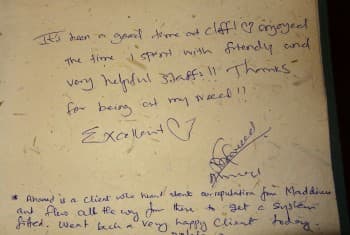 It's been a good time at Cliff! I enjoyed
the time I spent with friendly and
very helpful staffs!! Thanks
for being at my need!!
Excellent ♡
* Ahmed is a client who went amputation from Maldives
and flew all the way for this to get a system
fitted. Went back a very happy Client today.